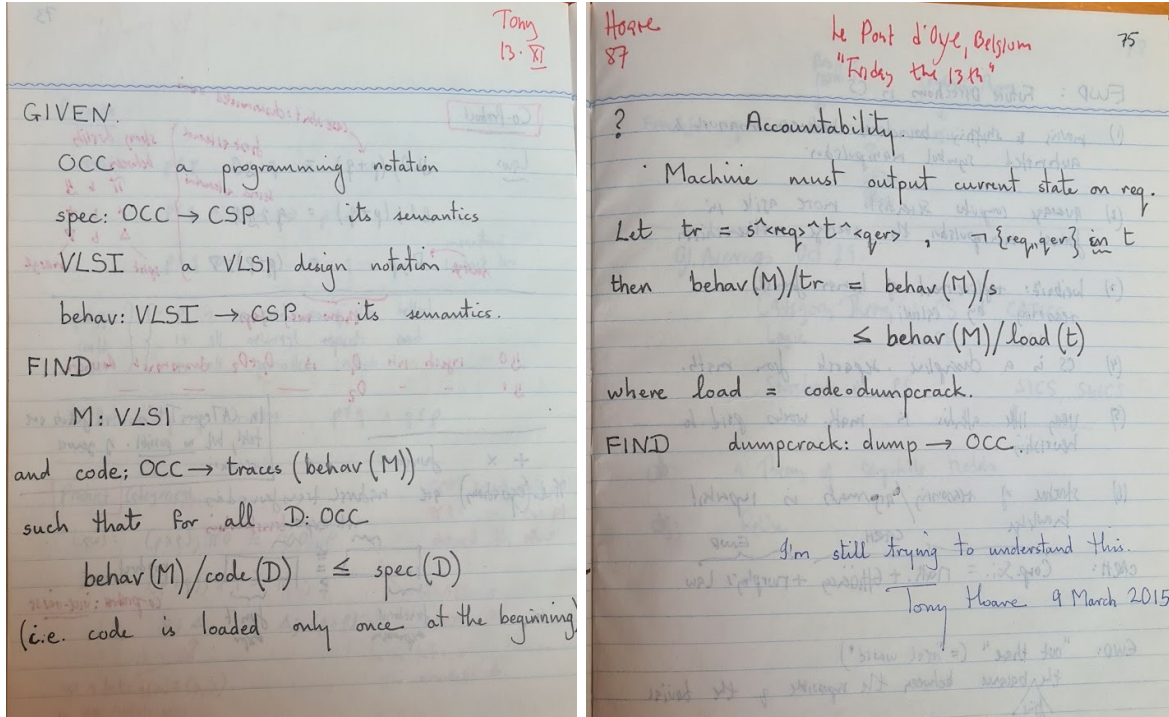 Tony
13·XI
GIVEN.
OCC a programming notation
spec: OCC → CSP its semantics
VLSI a VLSI design notation
behav: VLSI → CSP its semantics.
FIND
M: VLSI
and code; OCC → traces (behav(M))
such that for all D: OCC
behav(M)/code(D) ≤ spec(D)
(i.e. code is loaded only once at the beginning)
Hoare
87
Le Pont d'Oye, Belgium
"Friday the 13th"
75
? Accountability
· Machine must output current state on req.
Let tr = s^<req>^t^<qer> , ¬{req,qer} in t
then behav(M)/tr = behav(M)/s
≤ behav(M)/load(t)
where load = code∘dumpcrack.
FIND dumpcrack: dump → OCC.
I'm still trying to understand this.
Tony Hoare 9 March 2015